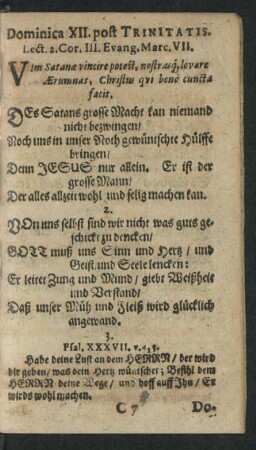 Dominica XII. post TRINITATIS.
Lect. 2. Cor. III. Evang. Marc. VII.
VIm Satanæ vincire potest, nostraq́; levare
Ærumnas, Christus qvi benè cuncta
facit.
DEs Satans grosse Macht kan niemand
nicht bezwingen/
Noch uns in unser Noth gewünschte Hülffe
bringen/
Denn JESUS nur allein. Er ist der
grosse Mann/
Der alles allzeit wohl und selig machen kan.
2.
VOn uns selbst sind wir nicht was guts ge-
schickt zu dencken/
GOTT muß uns Sinn und Hertz/ und
Geist und Seele lencken:
Er leitet Zung und Mund/ giebt Weißheit
und Verstand/
Daß unser Müh und Fleiß wird glücklich
angewand.
3.
Psal. XXXVII. v. 4, 5.
Habe deine Lust an dem HERRN/ der wird
dir geben/ was dein Hertz wünschet; Befihl dem
HERRN deine Wege/ und hoff auff Ihn/ Er
wirds wohl machen.
C 7 Do-